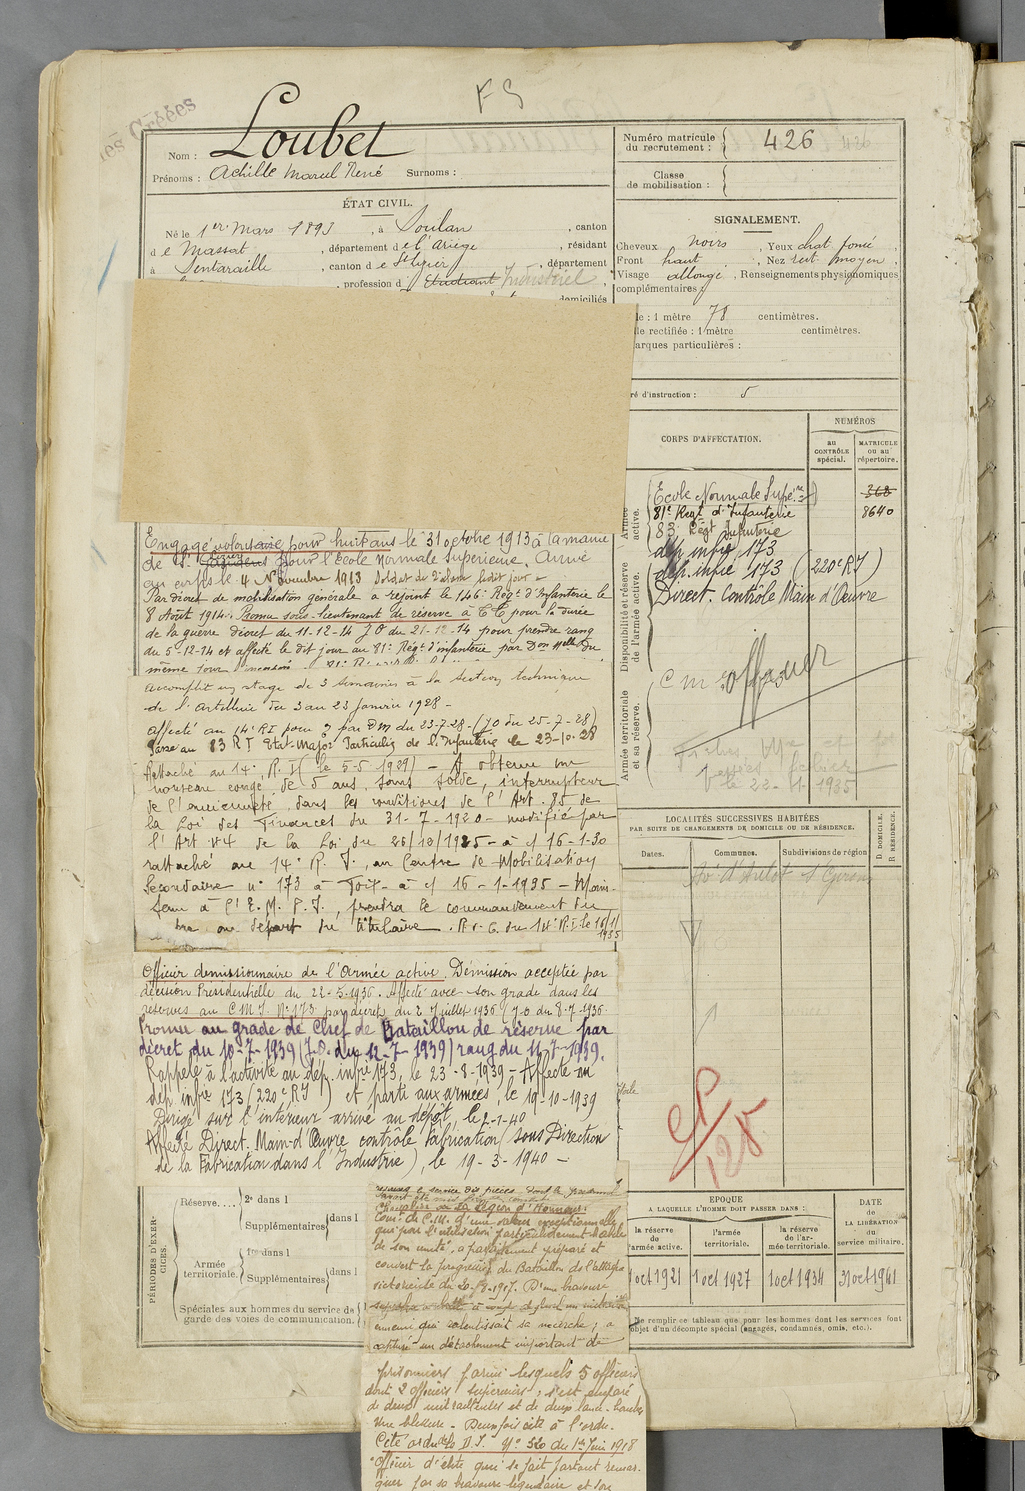 F S
les Créées
Nom : Loubet
Prénoms : Achille Marcel René Surnoms :
Numéro matricule du recrutement : 426
Classe de mobilisation :
ÉTAT CIVIL.
Né le 1er Mars 1893, à Soulan, canton
de Massat, département de l'Ariège, résidant
à Sentaraille, canton de St Lizier, département
, profession d'Etudiant Industriel,
domiciliés
SIGNALEMENT.
Cheveux noirs, Yeux chat. foncé,
Front haut, Nez rect. moyen,
Visage allongé, Renseignements physiognomiques
complémentaires :
le : 1 mètre 78 centimètres.
lle rectifiée : 1 mètre centimètres.
arques particulières :
ré d'instruction : 5
CORPS D'AFFECTATION.
NUMÉROS
au CONTRÔLE spécial.
MATRICULE ou au répertoire.
Armée active.
Ecole Normale Supére 368
81e Regt d'Infanterie 8640
83e Regt Infanterie
Disponibilité et réserve de l'armée active.
dép infie 173
dép. infie 173 (220e RJ)
Direct. Contrôle Main d'Œuvre
Armée territoriale et sa réserve.
C m effacer
le 22-1-1935
Engagé volontaire pour huit ans le 31 octobre 1913 à la mairie
de St pour l'école Normale Supérieure. Arrivé
au corps le 4 Novembre 1913 Soldat de 2e classe ledit jour
Par décret de mobilisation générale a rejoint le 146e Régt d'Infanterie le
8 Août 1914. Promu sous-lieutenant de réserve à TT pour la durée
de la guerre décret du 11-12-14 JO du 21-12-14 pour prendre rang
du 5-12-14 et affecté le dit jour au 81e Régt d'infanterie par Don Mlle du
même jour
Accomplit un stage de 3 semaines à la section technique
de l'artillerie du 3 au 23 janvier 1928 -
affecté au 14e RI pour par DM du 23-7-28 (JO du 25-7-28)
Passe au 83 RI Etat-Major Particulier de l'Infanterie le 23-10-28
Rattaché au 14e R.I (le 5-5-1929) - A obtenu un
nouveau congé de 5 ans, sans solde, interrupteur
de l'ancienneté, dans les conditions de l'Art. 85 de
la Loi des Finances du 31-7-1920 - modifié par
l'Art de la Loi du 26/10/1925 - à c/ 16-1-30
rattaché au 14e R.I. au Centre de Mobilisation
Secondaire n° 173 à Foix - à c/ 16-1-1935 - Main-
tenu à l'E.M.P.I., prendra le commandement du
au départ du titulaire. R.v.C. du 14e R.I. le 16/1/1935
Officier démissionnaire de l'armée active. Démission acceptée par
décision Présidentielle du 22-5-1936. Affecté avec son grade dans les
réserves au C.M.I. N° 173 par décret du 2 Juillet 1936 (J.O. du 8-7-1936.
Promu au grade de Chef de Bataillon de réserve par
décret du 10-7-1939 (J.O. du 12-7-1939) rang du 11-7-1939.
Rappelé à l'activité au dép. infie 173, le 23-8-1939 - Affecté au
dép infie 173 (220e RJ) et parti aux armées, le 19-10-1939
Dirigé sur l'intérieur arrivé au dépôt, le 2-1-40
Affecté Direct. Main-d'Œuvre contrôle fabrication (sous Direction
de la Fabrication dans l'Industrie), le 19-3-1940 -
LOCALITÉS SUCCESSIVES HABITÉES
PAR SUITE DE CHANGEMENTS DE DOMICILE OU DE RÉSIDENCE.
Dates. Communes. Subdivisions de région
D. DOMICILE. R. RÉSIDENCE.
St Girons
CP/128
PÉRIODES D'EXERCICES.
Réserve.... 2e dans l
Supplémentaires dans l
Armée territoriale. 1re dans l
Supplémentaires dans l
Spéciales aux hommes du service de
garde des voies de communication.
EPOQUE
A LAQUELLE L'HOMME DOIT PASSER DANS :
la réserve de l'armée active.
l'armée territoriale.
la réserve de l'armée territoriale.
DATE de LA LIBÉRATION du service militaire.
1 oct 1921 1 oct 1927 1 oct 1934 31 oct 1941
Ne remplir ce tableau que pour les hommes dont les services font
l'objet d'un décompte spécial (engagés, condamnés, omis, etc.).
le service des pièces dont le personnel
Chevalier de la Légion d'Honneur :
Comt de C.M. d'une valeur exceptionnelle
qui par l'utilisation particulièrement habile
de son unité, a parfaitement préparé et
couvert la progression du Bataillon de l'attaque
victorieuse du 20-8-1917. D'une bravoure
superbe
ennemi qui ralentissait sa marche ; a
capturé un détachement important de
prisonniers parmi lesquels 5 officiers
dont 2 officiers supérieurs ; s'est emparé
de deux mitrailleuses et de deux lance-bombes
Une blessure - Deux fois cité à l'ordre.
Cité ordre de la D.I. N° 520 du 1er Juin 1918
"Officier d'élite qui se fait partout remar-
quer par sa bravoure légendaire et son